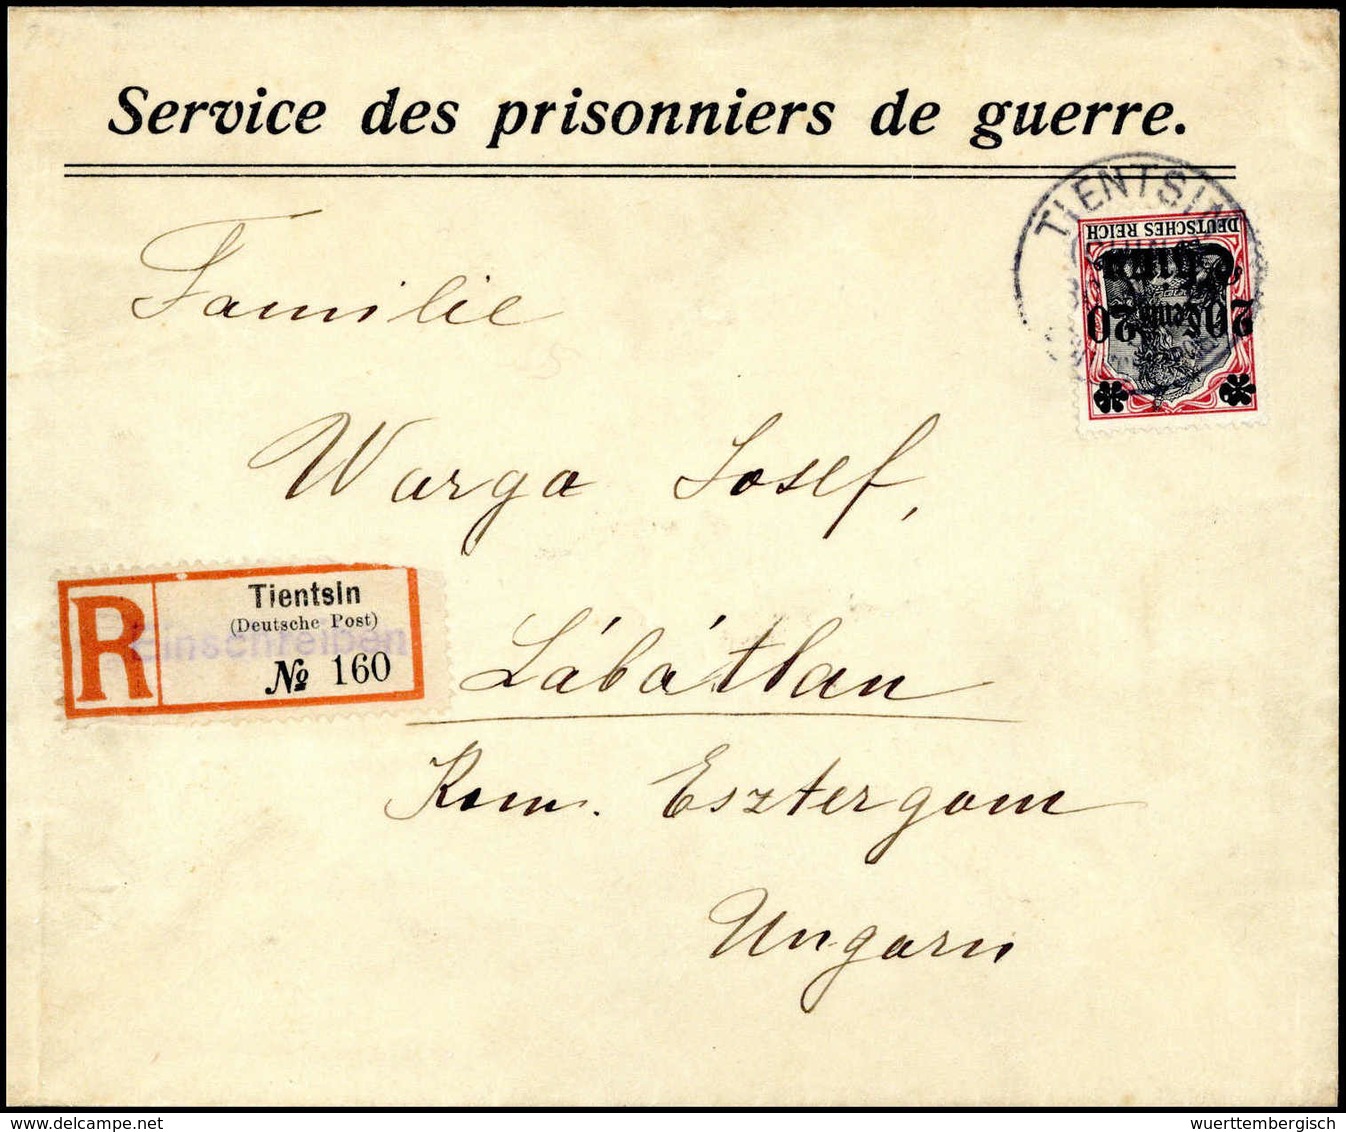 Service des prisonniers de guerre.
TIENTSIN
DEUTSCHES REICH
China
20 Cents 20
Familie
Warga Josef,
Tientsin
(Deutsche Post)
Einschreiben
R
№ 160
Lábátlan
Kom. Esztergom
Ungarn
wuerttembergisch